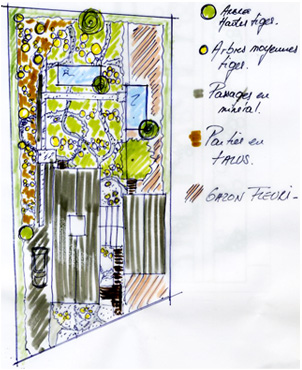 Arbres
Hautes tiges.
Arbres moyennes
tiges.
Passages en
minéral.
Parties en
TALUS.
GAZON FLEURI-